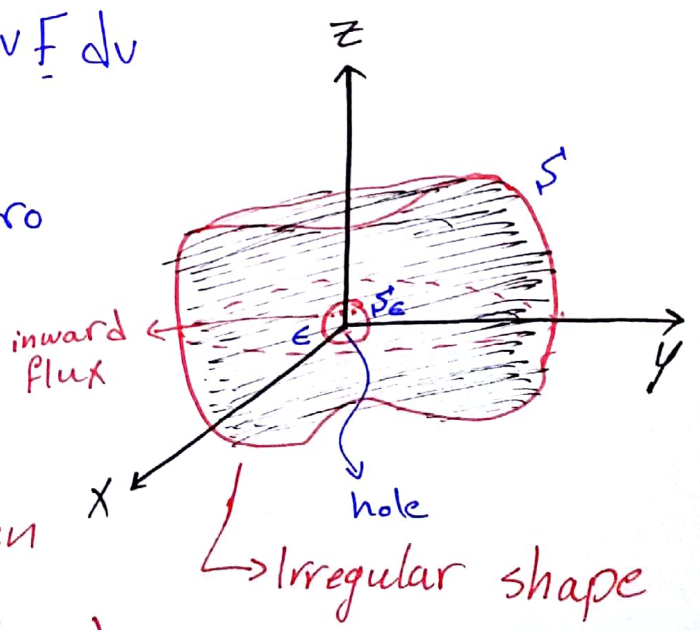 v F dv
z
S
ro
Sϵ
inward
flux
ϵ
y
x
hole
en
Irregular shape